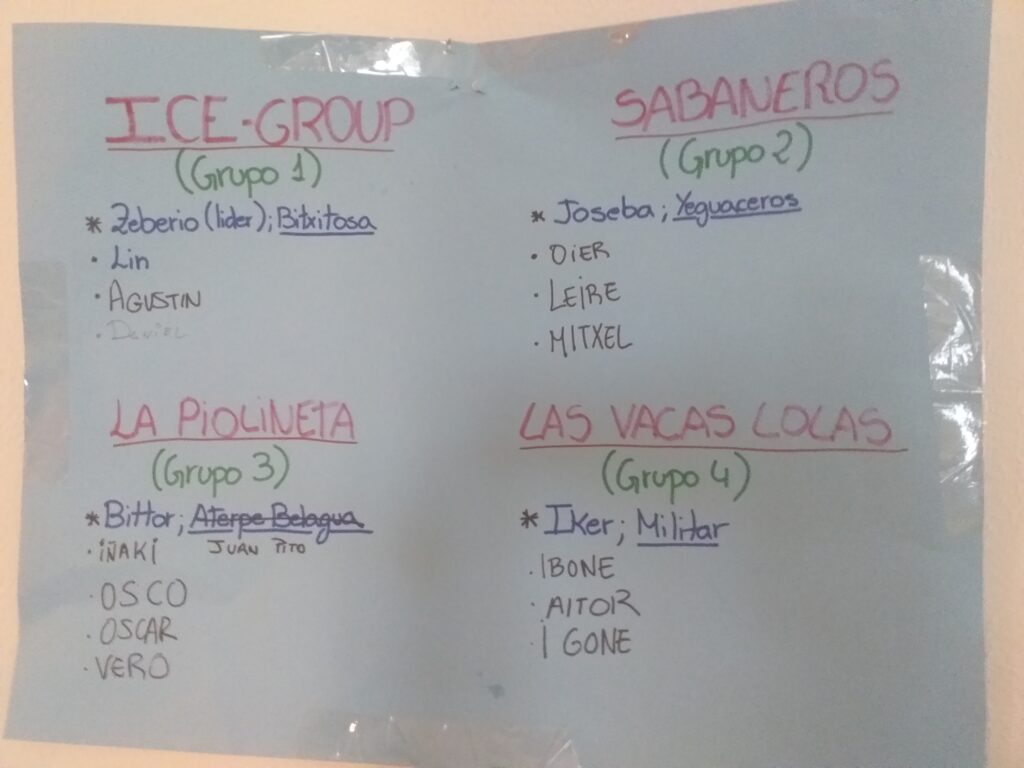 ICE-GROUP
(Grupo 1)
* Zeberio (lider); Bitxitosa
· Lin
· AGUSTIN
· DANIEL
SABANEROS
(Grupo 2)
* Joseba; Yeguaceros
· OIER
· LEIRE
· MITXEL
LA PIOLINETA
(Grupo 3)
* Bittor; ATerpe Belagua
JUAN PITO
· IÑAKI
· OSCO
· OSCAR
· VERO
LAS VACAS LOCAS
(Grupo 4)
* Iker; Militar
· IBONE
· AITOR
· IGONE